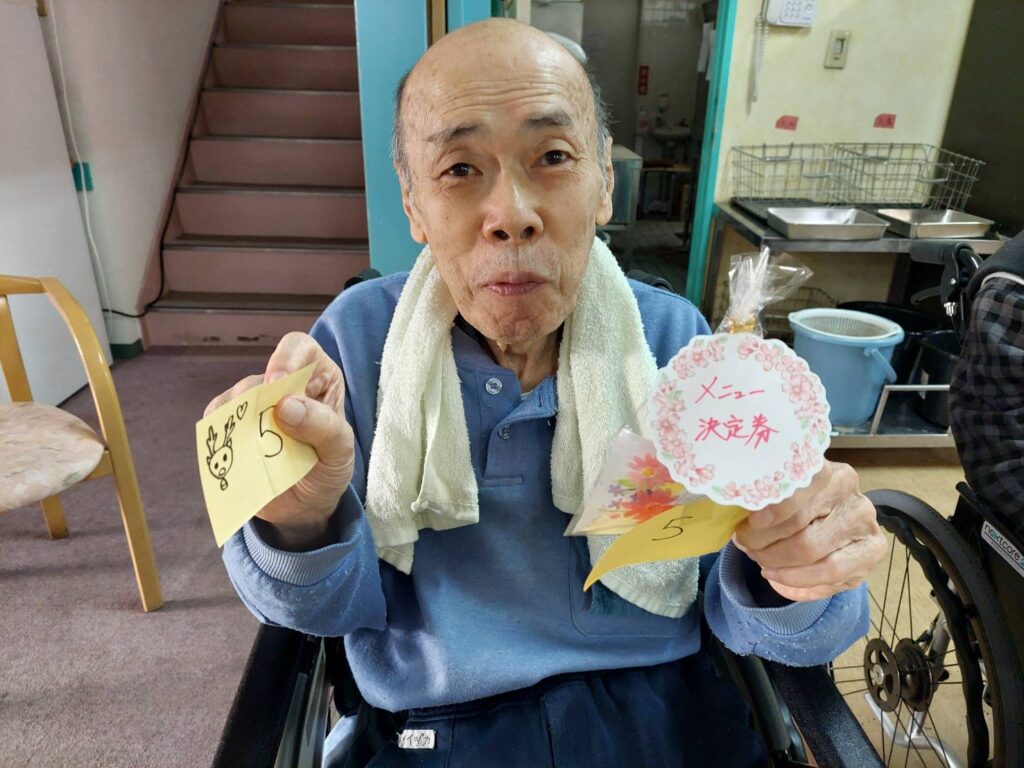 5
メニュー
決定券
5